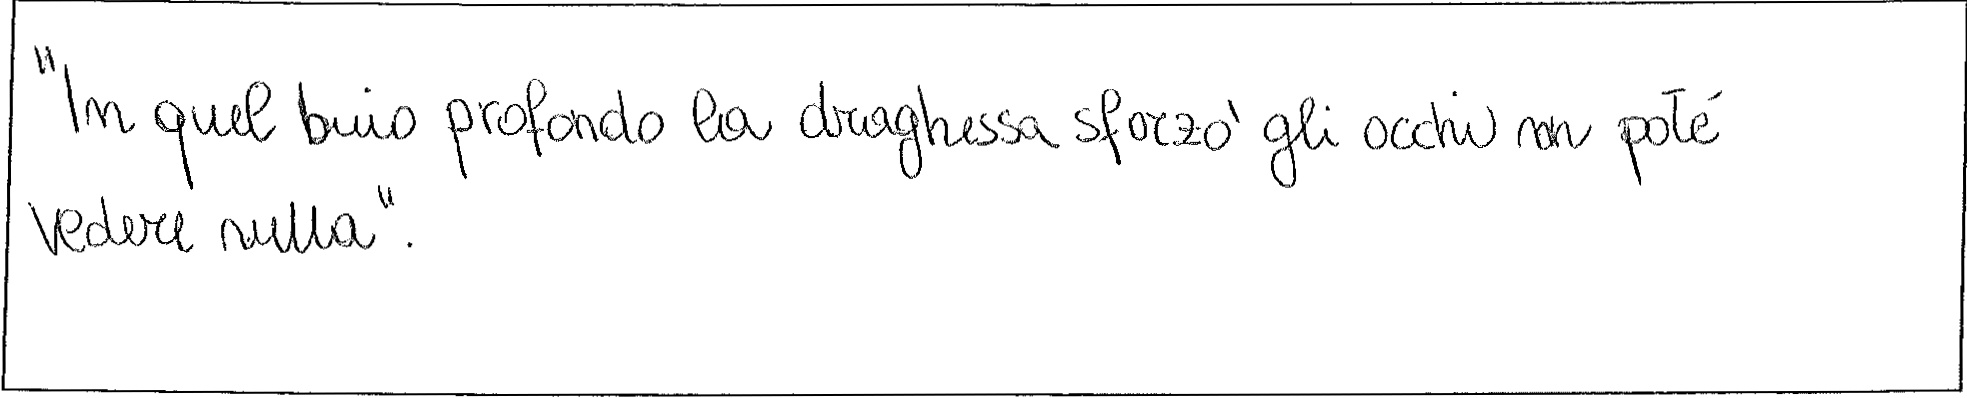 "In quel buio profondo la draghessa sforzò gli occhi non poté
vedere nulla".